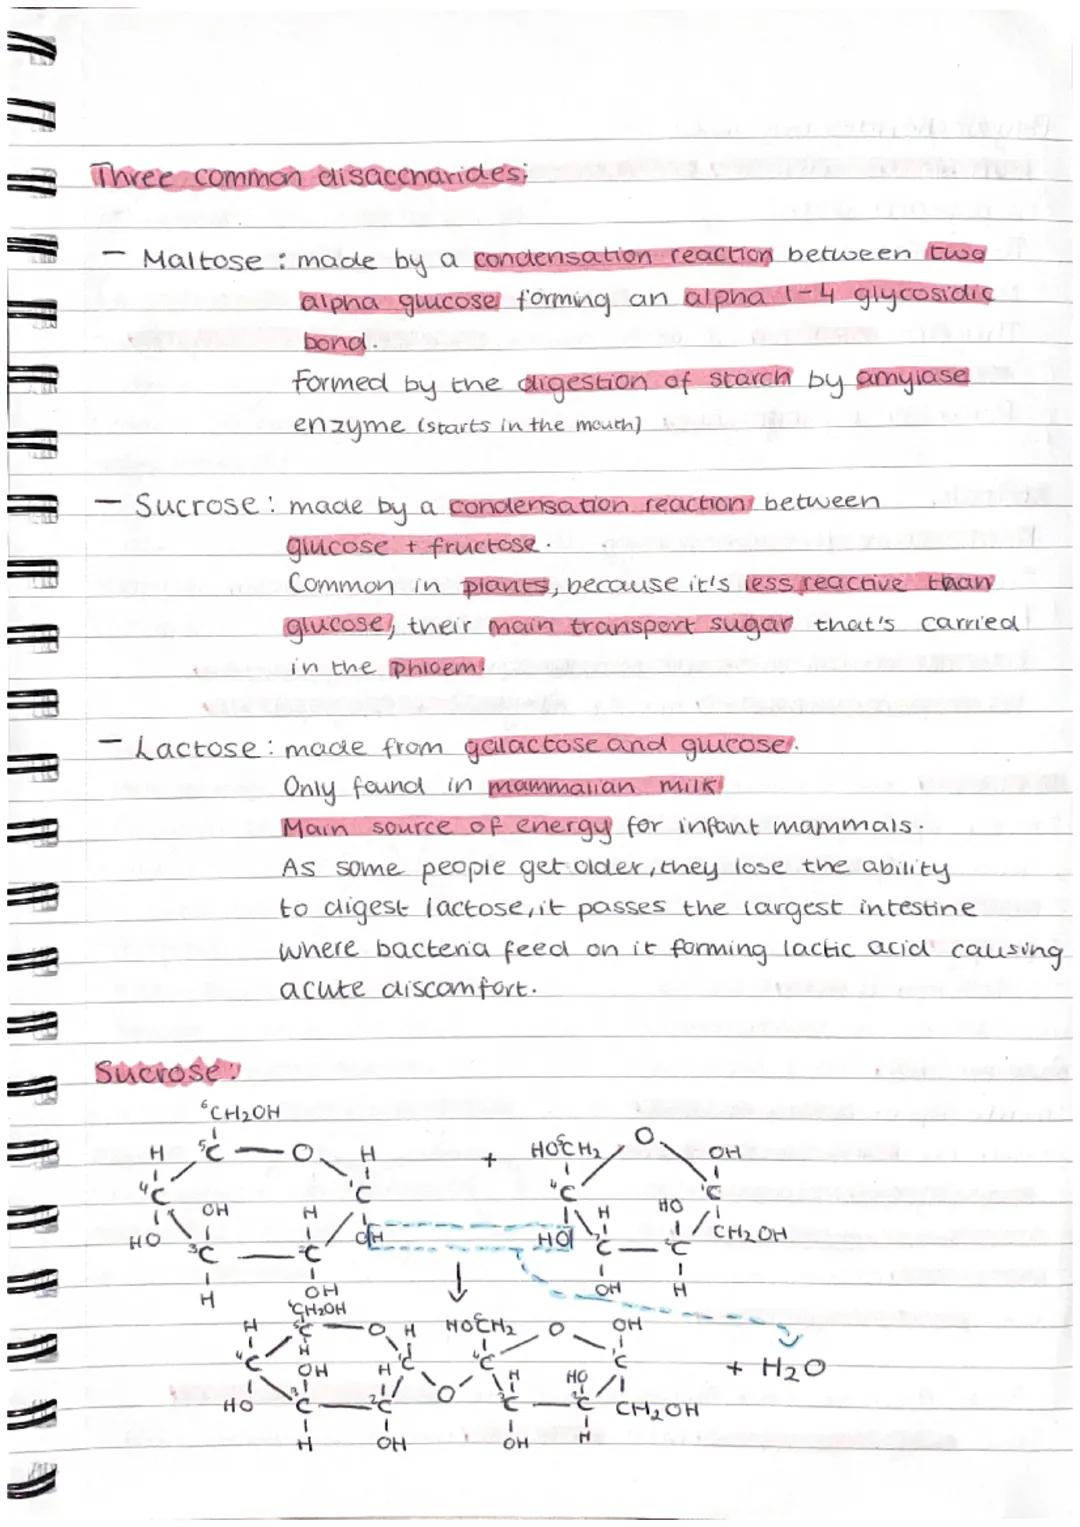 Three common disaccharides:
- Maltose : made by a condensation reaction between two
alpha glucose forming an alpha 1-4 glycosidic
bond.
Formed by the digestion of starch by amylase
enzyme (starts in the mouth)
- Sucrose : made by a condensation reaction between
glucose + fructose.
Common in plants, because it's less reactive than
glucose, their main transport sugar that's carried
in the phloem.
- Lactose : made from galactose and glucose.
Only found in mammalian milk
Main source of energy for infant mammals.
As some people get older, they lose the ability
to digest lactose, it passes the largest intestine
where bacteria feed on it forming lactic acid causing
acute discomfort.
Sucrose:
6CH2OH
H 5C O H + HOCH2 O OH
4C 1C 4C 1C
OH H H HO
HO 3C 2C OH HO C C CH2OH
H OH OH H
CH2OH
H C O H HOCH2 O OH
4C H C 4C C
OH H H HO + H2O
HO C 2C O C C CH2OH
H OH OH H